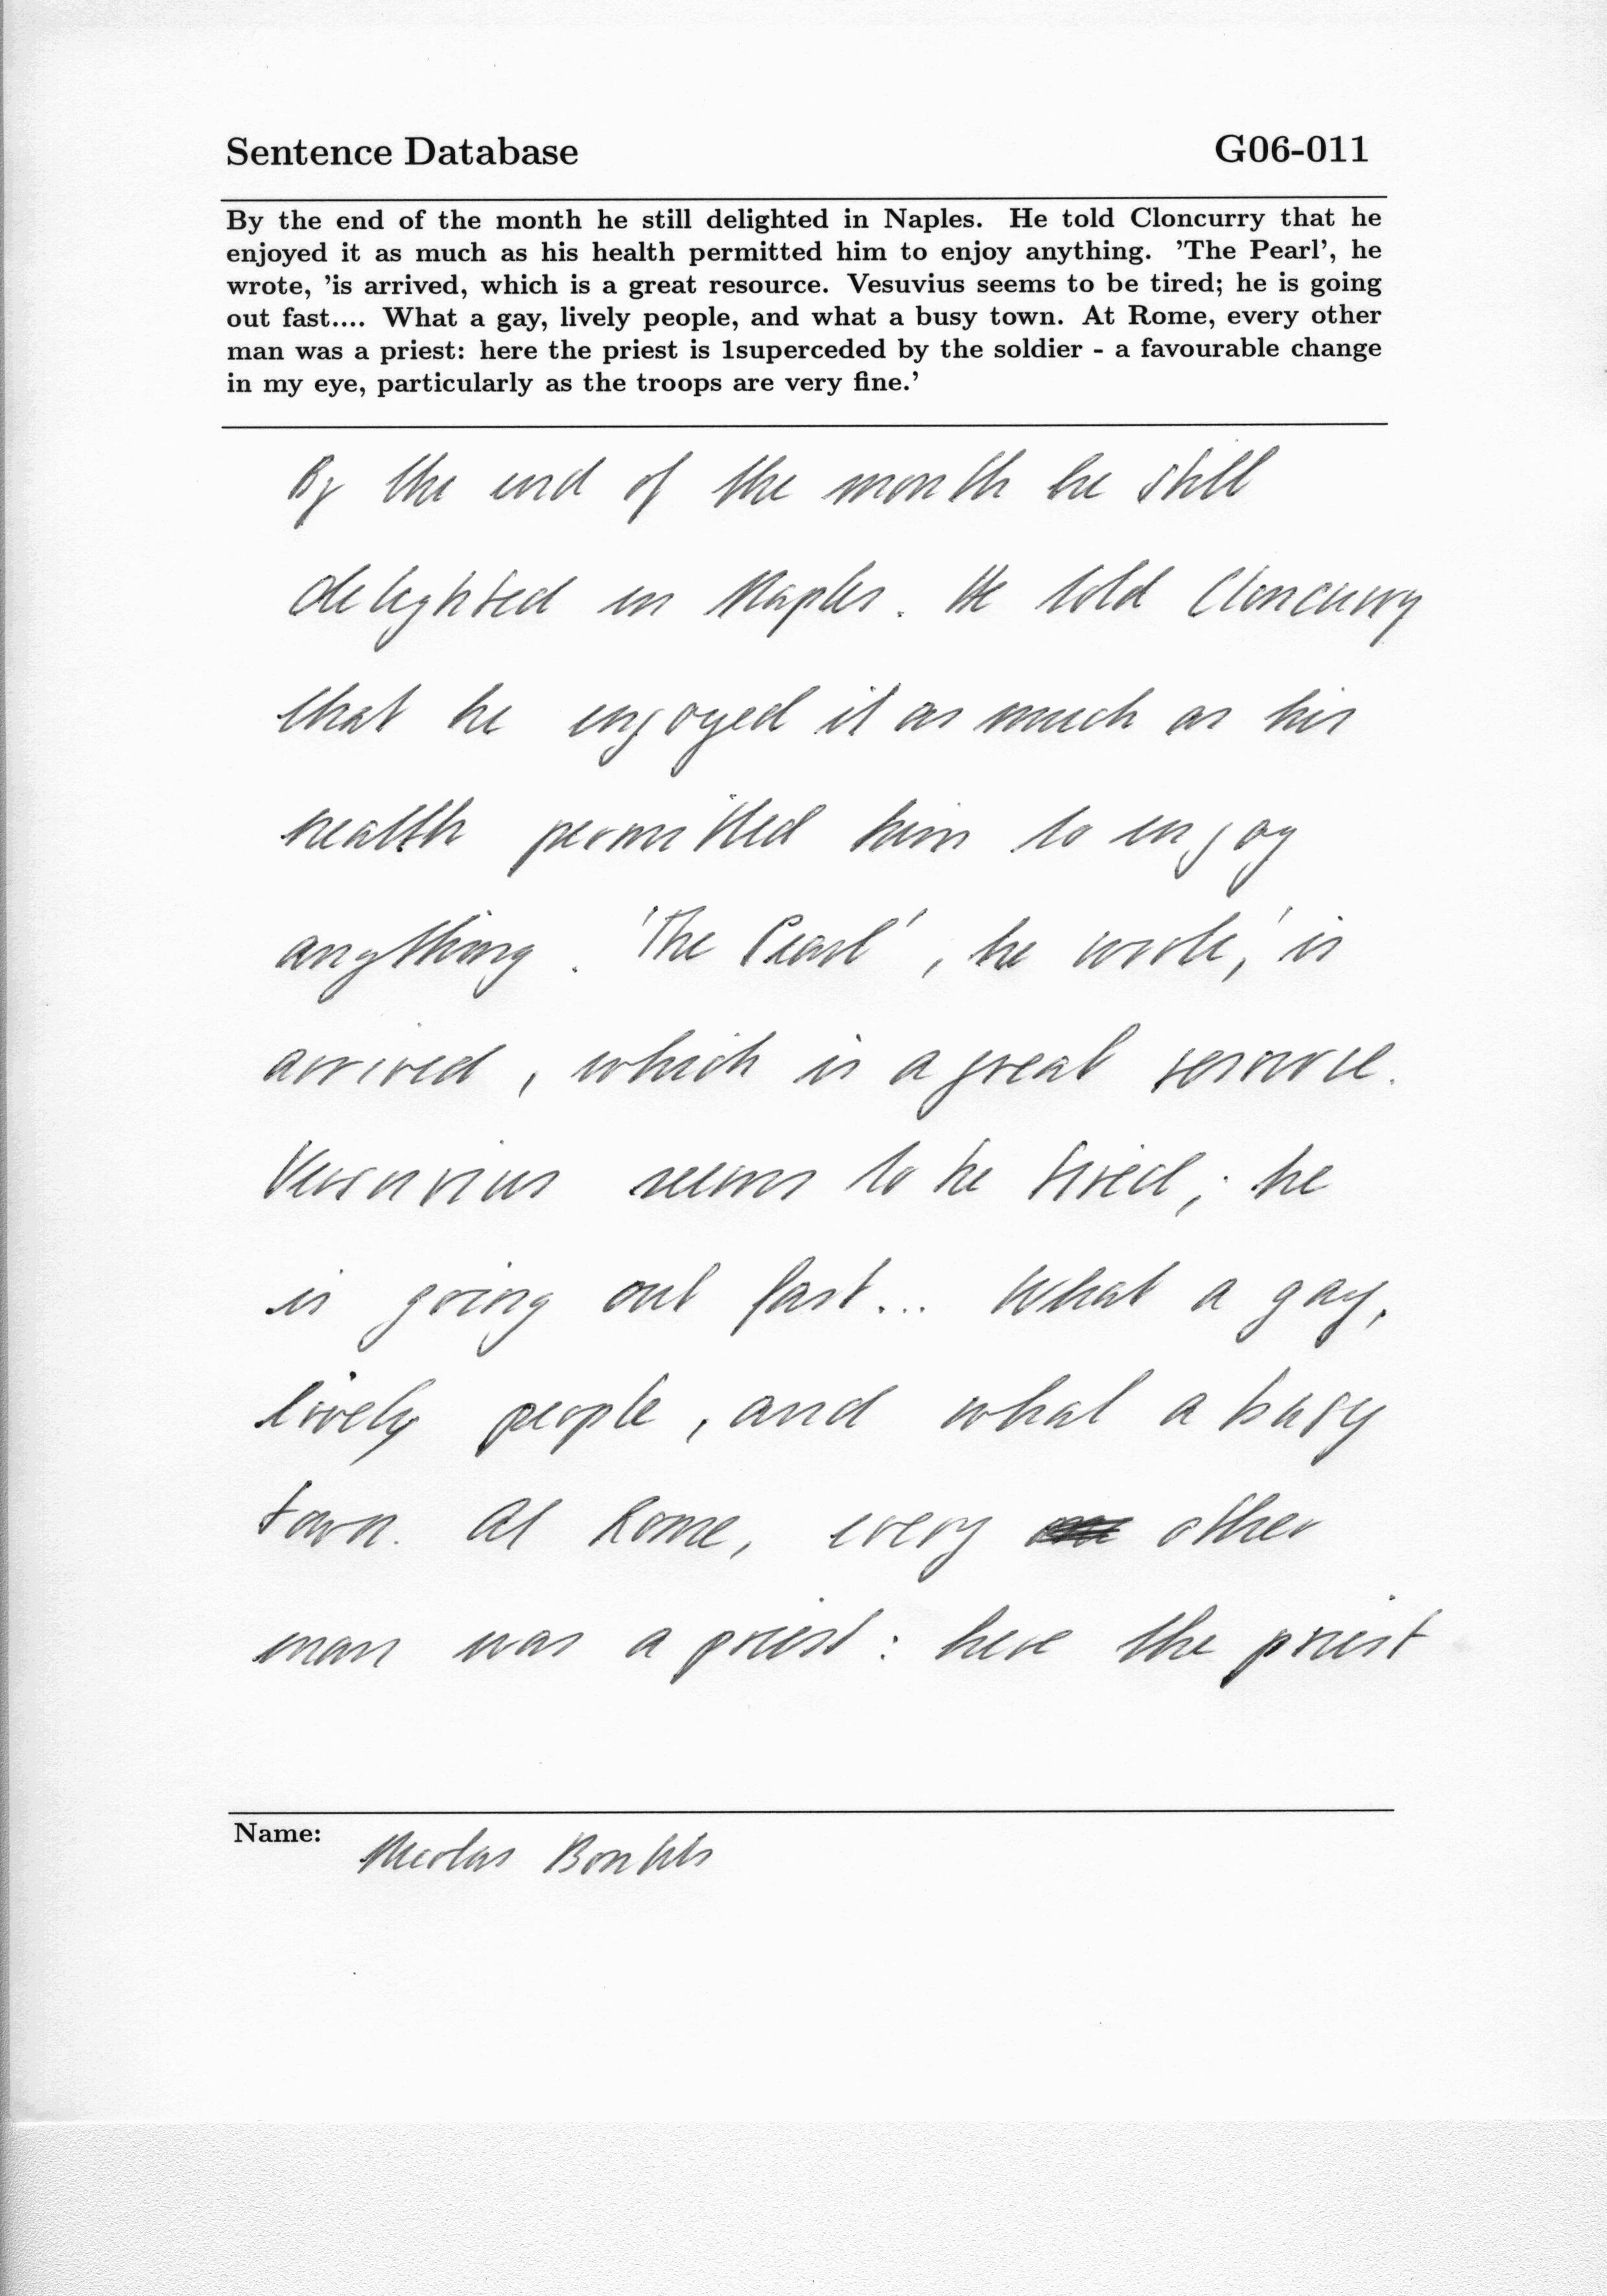 Sentence Database G06-011
By the end of the month he still delighted in Naples. He told Cloncurry that he
enjoyed it as much as his health permitted him to enjoy anything. 'The Pearl', he
wrote, 'is arrived, which is a great resource. Vesuvius seems to be tired; he is going
out fast.... What a gay, lively people, and what a busy town. At Rome, every other
man was a priest: here the priest is 1superceded by the soldier - a favourable change
in my eye, particularly as the troops are very fine.'
By the end of the month he still
delighted in Naples. He told Cloncurry
that he enjoyed it as much as his
health permitted him to enjoy
anything. 'The Pearl', he wrote, 'is
arrived, which is a great resource.
Vesuvius seems to be tired; he
is going out fast... What a gay,
lively people, and what a busy
town. At Rome, every other
man was a priest: here the priest
Name: Nicolas